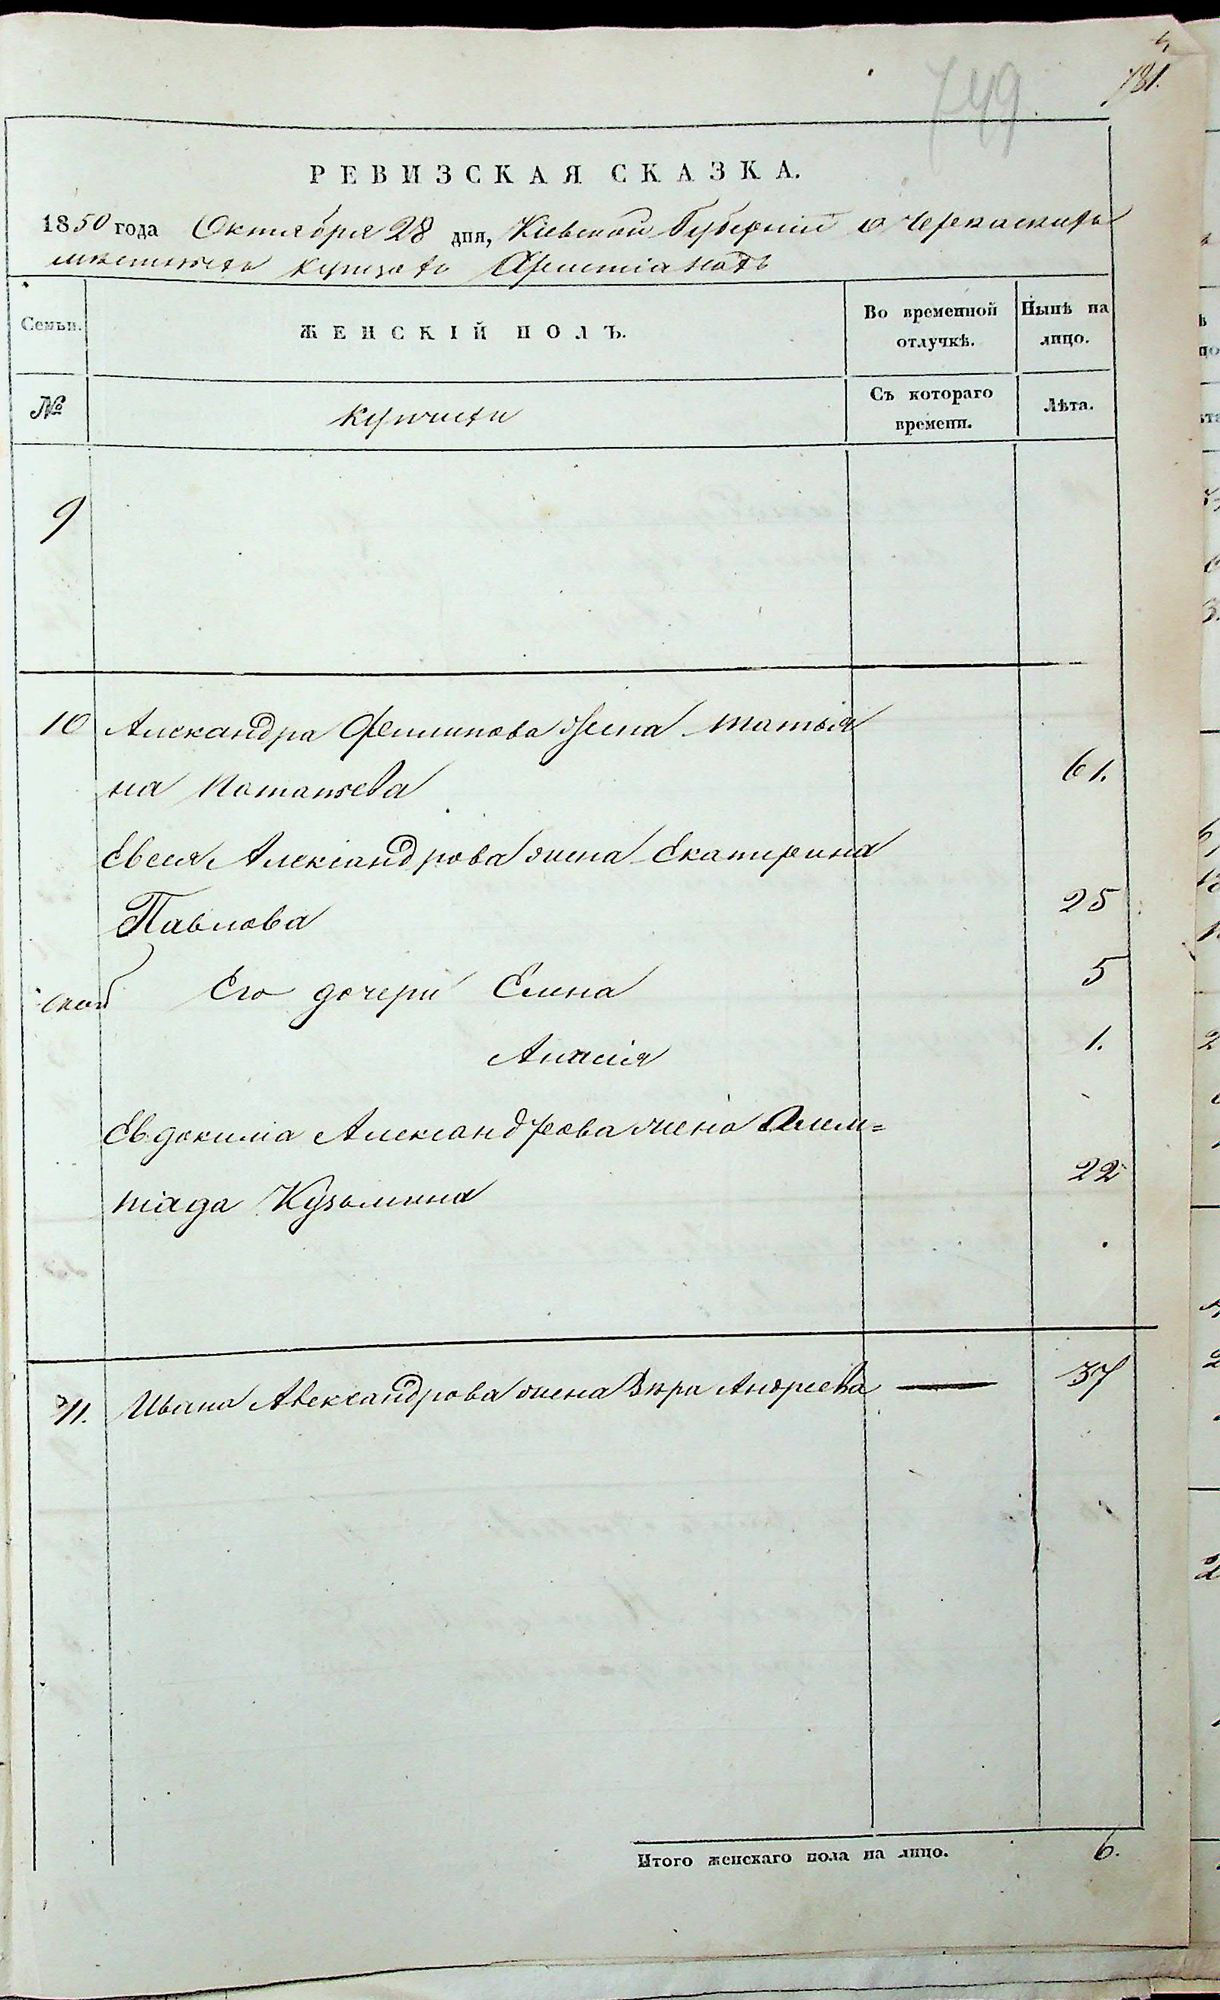 749
781.
РЕВИЗСКАЯ СКАЗКА.
1850 года Октября 28 дня, Кіевской Губерніи о Черкаскихъ
мѣстныхъ купцахъ Христіанахъ
Семьи. ЖЕНСКІЙ ПОЛЪ. Во временной отлучкѣ. Нынѣ на лицо.
№ купчихи Съ котораго времени. Лѣта.
9
10 Александра Филипова жена Татья
на Потапьева 61.
Евсея Александрова жена Екатирина
Павлова 25
ской Его дочери Елена 5
Анасія 1.
Евдокима Александрова жена Олим=
піада Кузьмина 22
11. Ивана Александрова жена Вѣра Андреева — 37
Итого женскаго пола на лицо. 6.